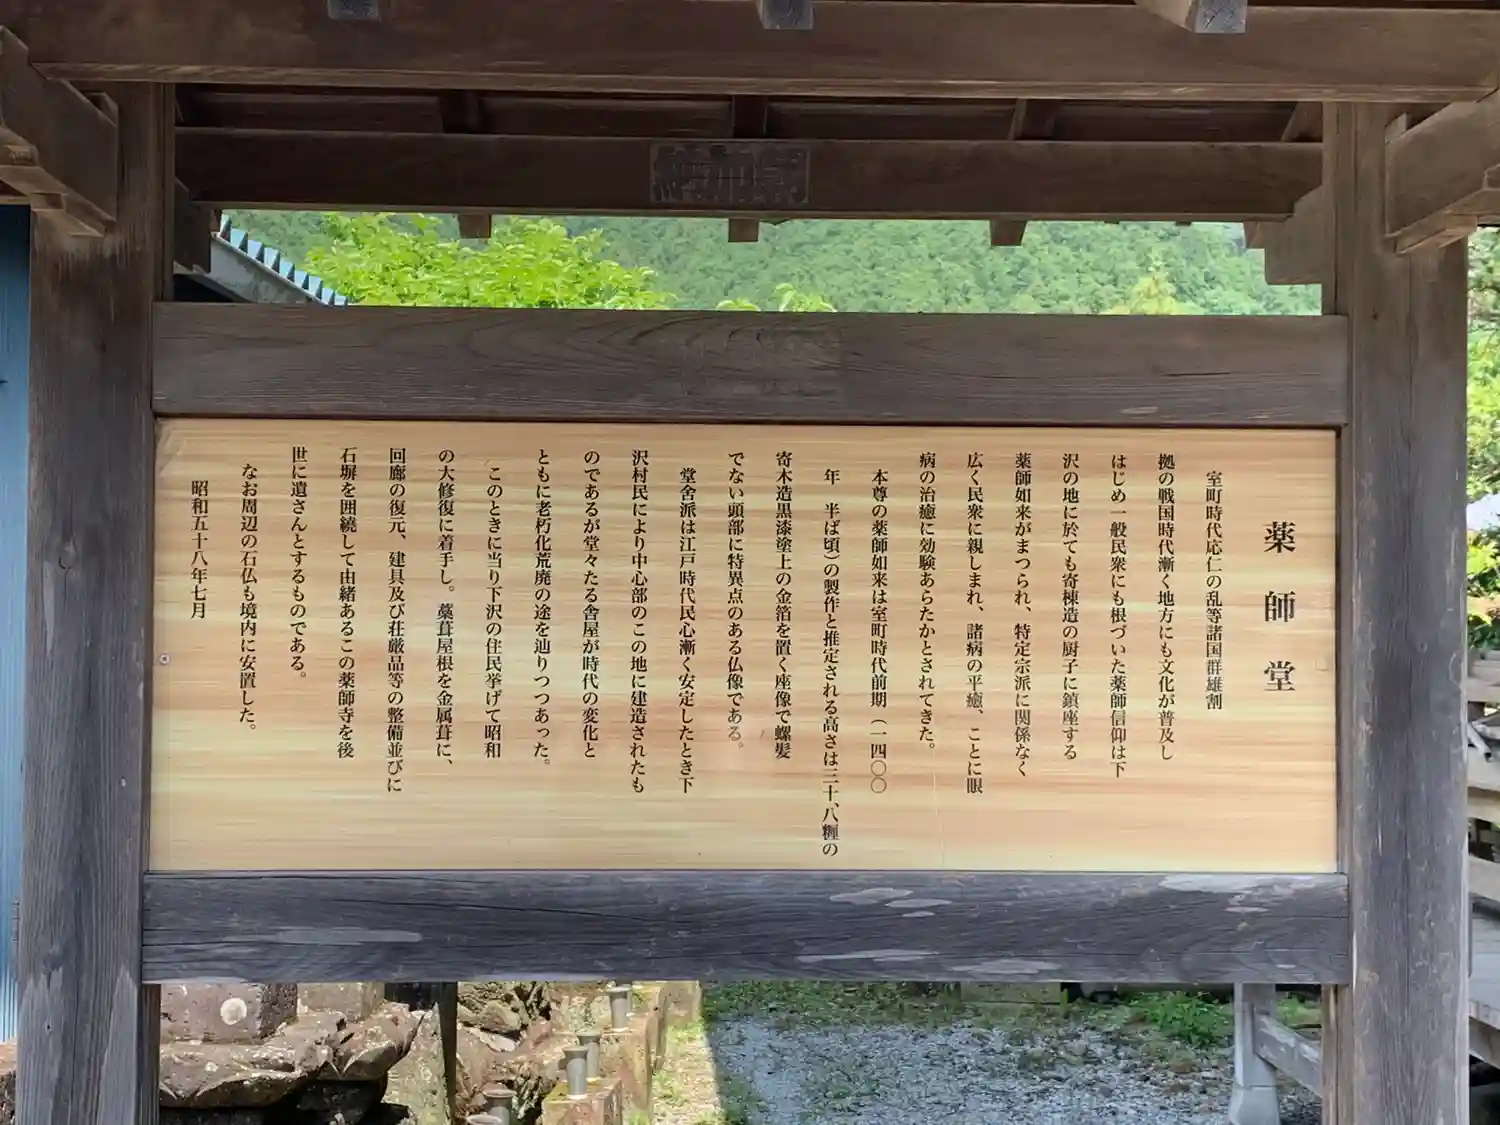 薬師堂
室町時代応仁の乱等諸国群雄割
拠の戦国時代漸く地方にも文化が普及し
はじめ一般民衆にも根づいた薬師信仰は下
沢の地に於ても寄棟造の厨子に鎮座する
薬師如来がまつられ、特定宗派に関係なく
広く民衆に親しまれ、諸病の平癒、ことに眼
病の治癒に効験あらたかとされてきた。
本尊の薬師如来は室町時代前期（一四〇〇
年　半ば頃）の製作と推定される高さは三十、八糎の
寄木造黒漆塗上の金箔を置く座像で螺髪
でない頭部に特異点のある仏像である。
堂舎派は江戸時代民心漸く安定したとき下
沢村民により中心部のこの地に建造されたも
のであるが堂々たる舎屋が時代の変化と
ともに老朽化荒廃の途を辿りつつあった。
このときに当り下沢の住民挙げて昭和
の大修復に着手し。藁葺屋根を金属葺に、
回廊の復元、建具及び荘厳品等の整備並びに
石塀を囲繞して由緒あるこの薬師寺を後
世に遺さんとするものである。
なお周辺の石仏も境内に安置した。
昭和五十八年七月